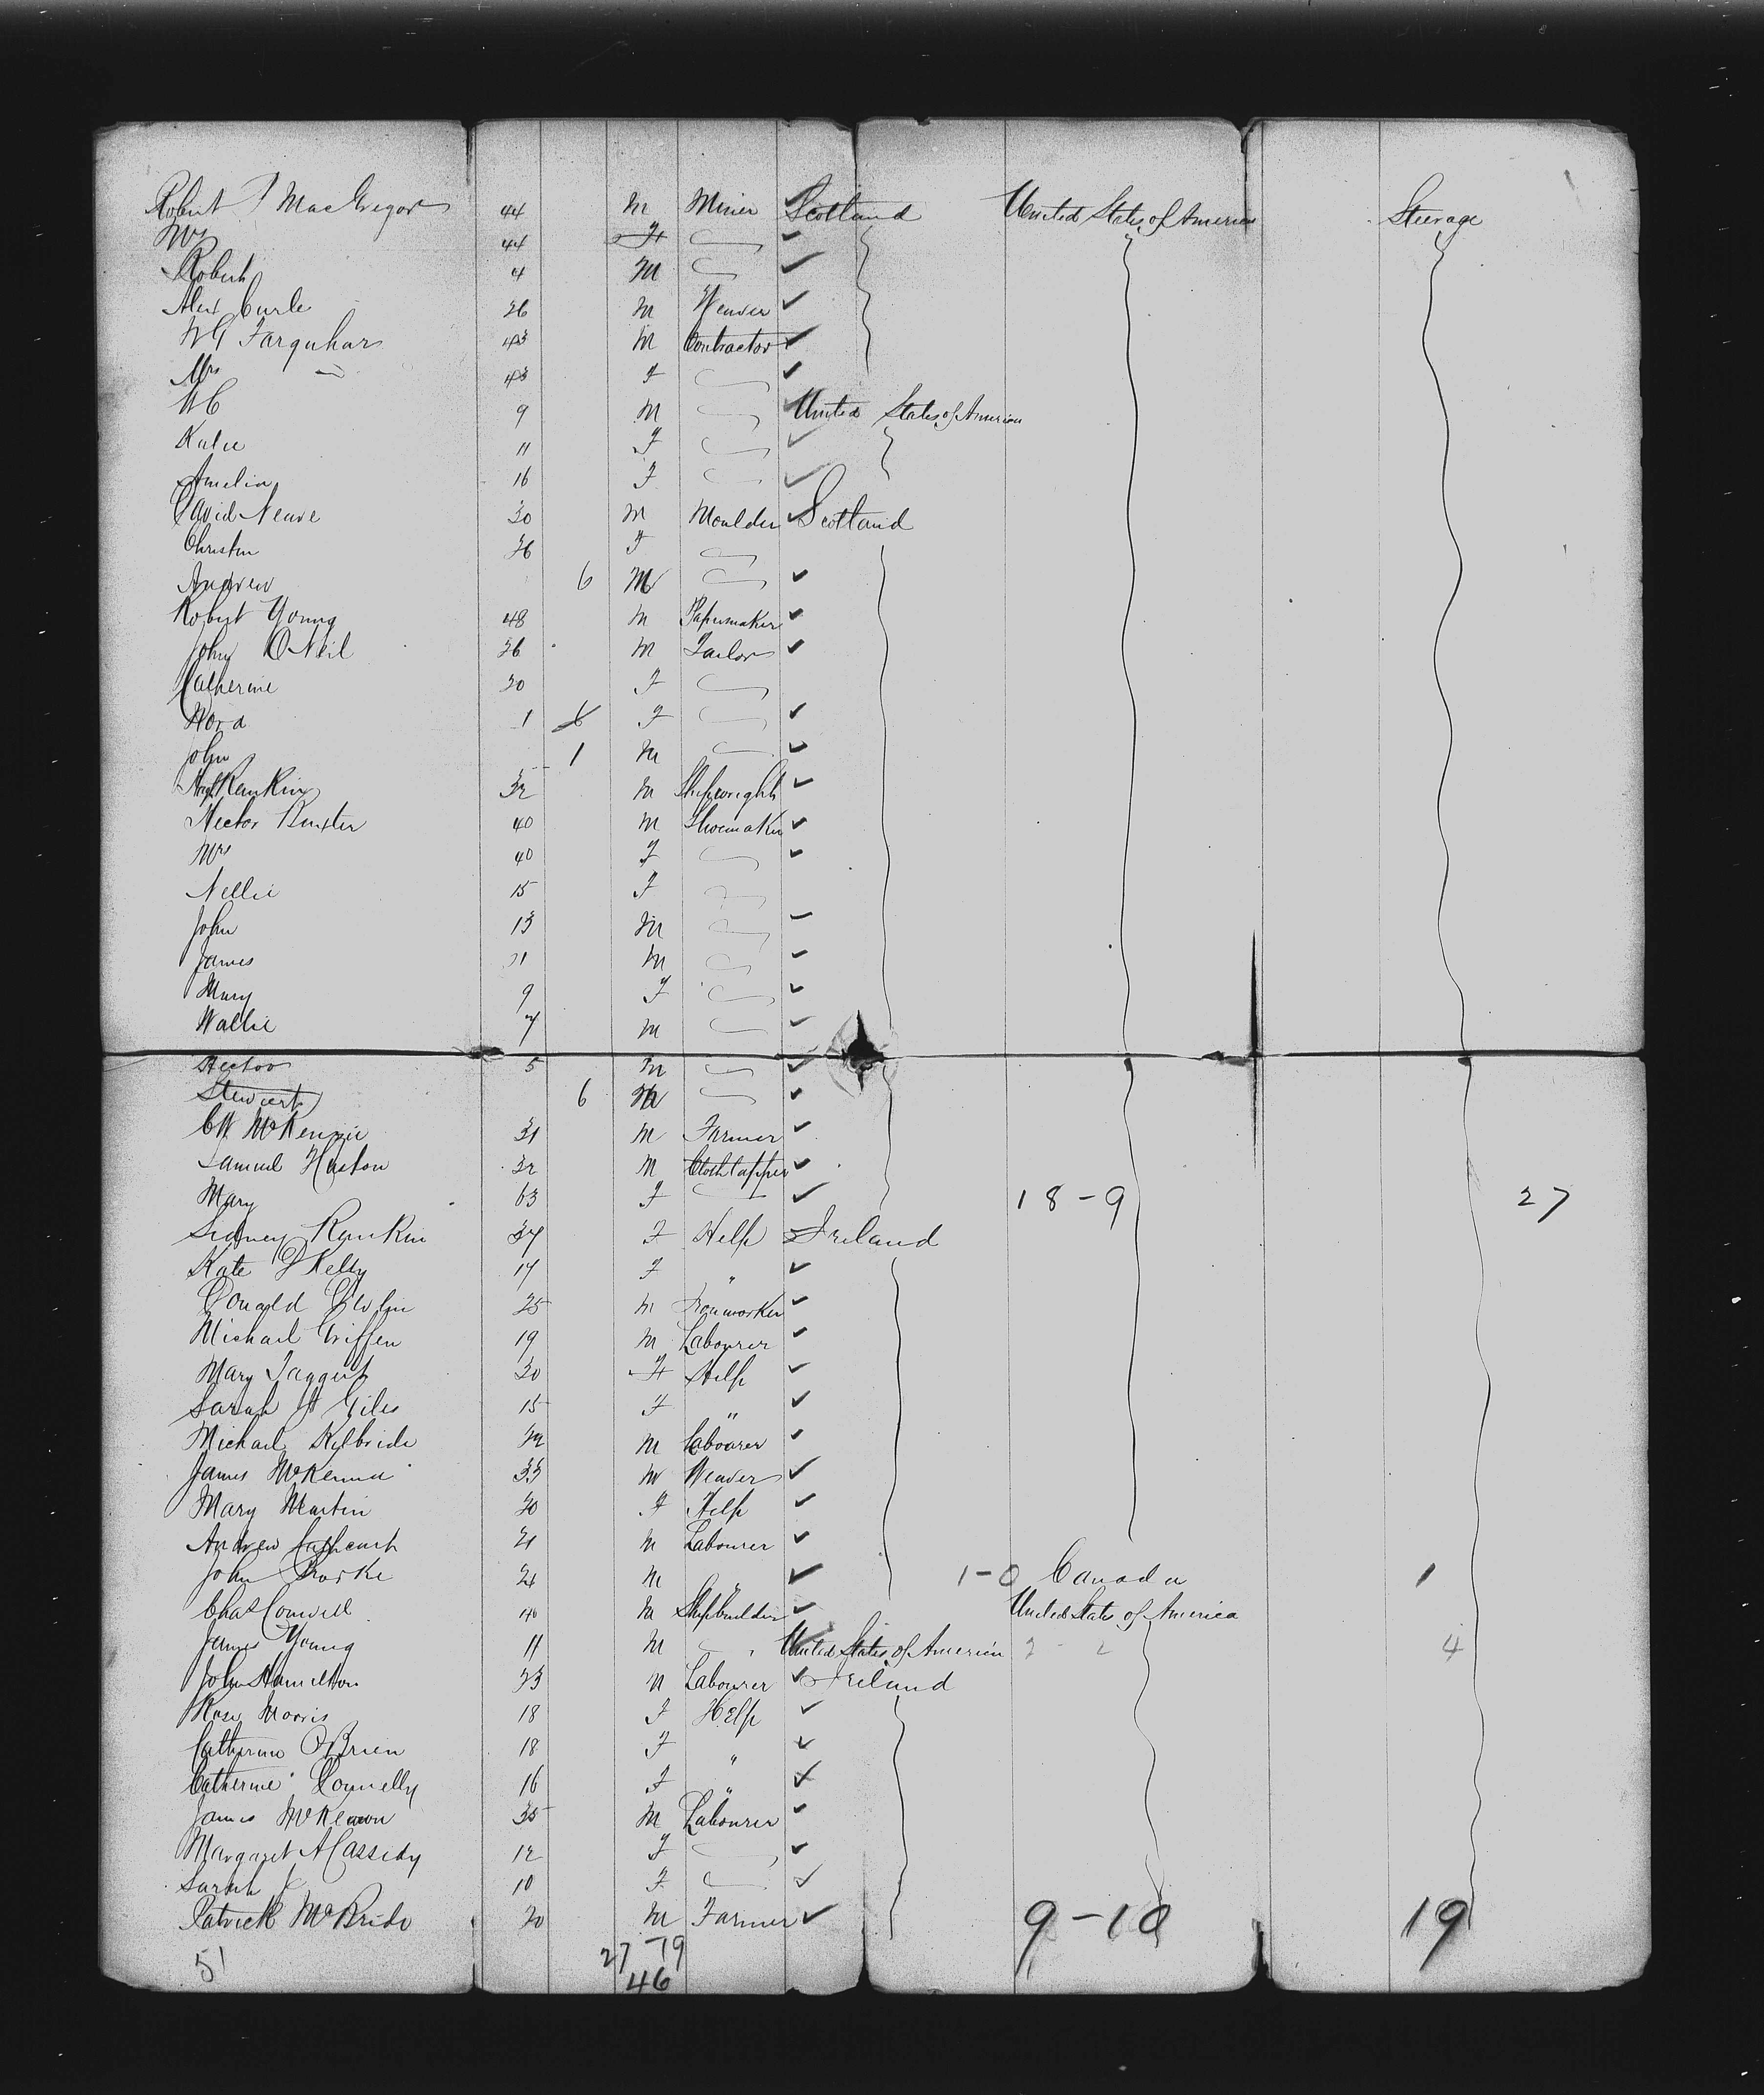 Robert MacGregor 44 M Miner Scotland United States of America Steerage
Mrs 44 F
Robert 4 M
Alex Curle 26 M Weaver
W G Farquhar 43 M Contractor
Mrs 43 F
W C 9 M United States of America
Katie 11 F
Amelia 16 F
David Neave 30 M Moulder Scotland
Christin 26 F
Andrew 6 M
Robert Young 48 M Papermaker
John O'Neil 26 M Tailor
Catherine 20 F
Nora 1 F
John 1 M
Rankin 32 M Shipwright
Hector Buxter 40 M Shoemaker
Mrs 40 F
Nellie 15 F
John 13 M
James M
Mary 9 F
Wallie 7 M
Hector 5 M
Stewart 6 M
McKenzie 31 M Farmer
Samuel Huston 32 M Clothlapper
Mary 63 F 18-9 27
Sidney Rankin 34 F Help Ireland
Kate Kelly 17 F "
Donald 25 M Ironworker
Michael Griffen 19 M Labourer
Mary Taggert 20 F Help
Sarah Giles 15 F "
Michael Kilbride M Labourer
James McKenna 33 M Weaver
Mary Martin 20 F Help
Andrew 21 M Labourer
John 21 M 1-0 Canada 1
Chas Conwell 40 M Shipbuilder United States of America
James Young 11 M United States of America 2 - 2 4
John Hamilton 23 M Labourer Ireland
Rose Morris 18 F Help
Catherine O'Brien 18 F "
Catherine Connelly 16 F "
James McKeown 35 M Labourer
Margaret A Cassidy 12 F
Sarah 10 F
Patrick McBride 20 M Farmer 9-10 19
51 27 -19
46